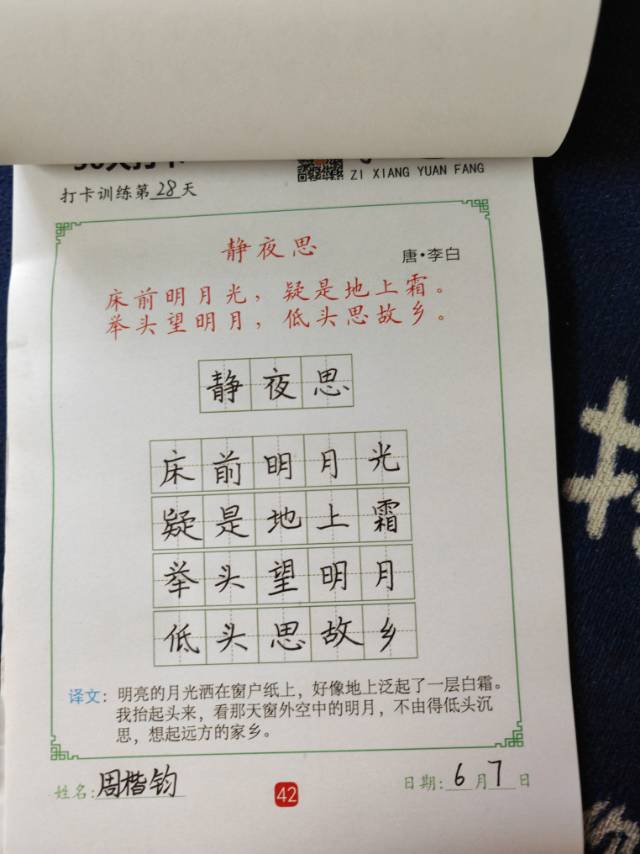 ZI XIANG YUAN FANG
打卡训练第28天
静夜思
唐·李白
床前明月光，疑是地上霜。
举头望明月，低头思故乡。
静夜思
床前明月光
疑是地上霜
举头望明月
低头思故乡
译文：明亮的月光洒在窗户纸上，好像地上泛起了一层白霜。
我抬起头来，看那天窗外空中的明月，不由得低头沉
思，想起远方的家乡。
姓名:周楷钧
42
日期:6月7日